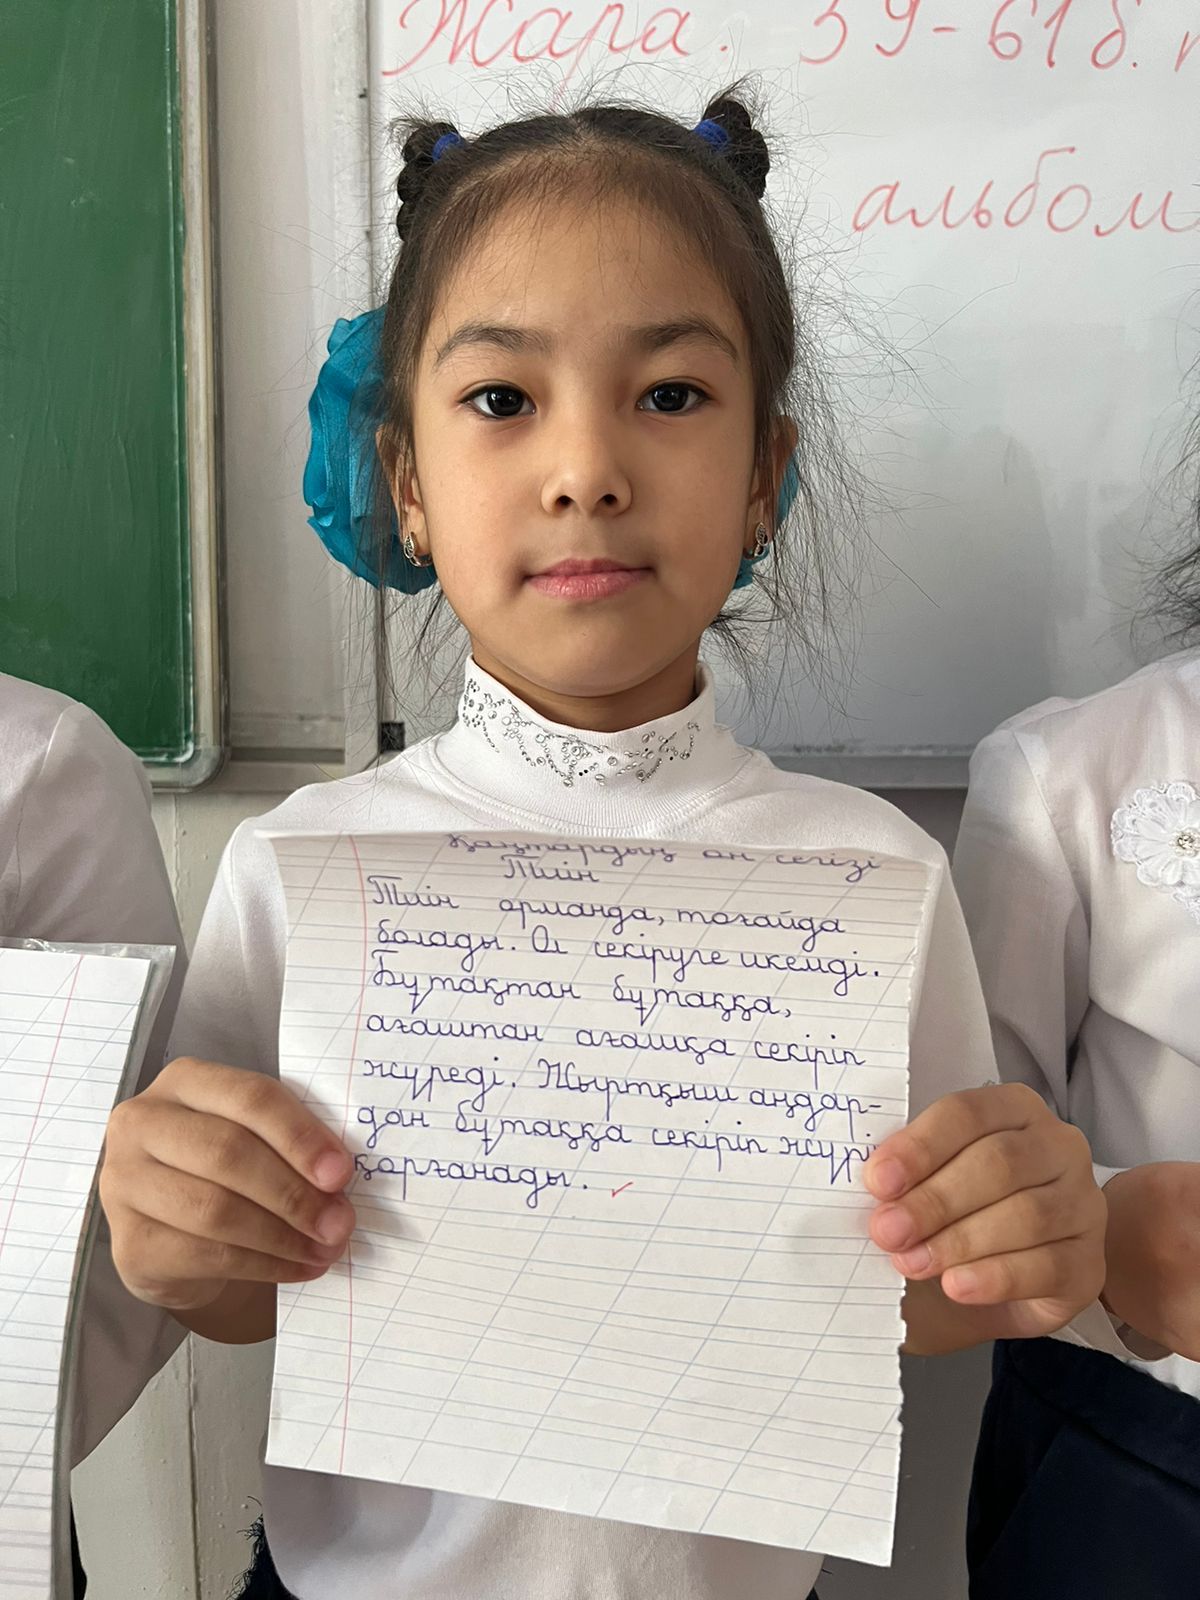 Жара. 39-61б.
альбом
Қаңтардың он сегізі
Тиін
Тиін орманда, тоғайда
болады. Ол секіруге икемді.
Бұтақтан бұтаққа,
ағаштан ағашқа секіріп
жүреді. Жыртқыш аңдар-
дан бұтаққа секіріп жүрі
қорғанады.